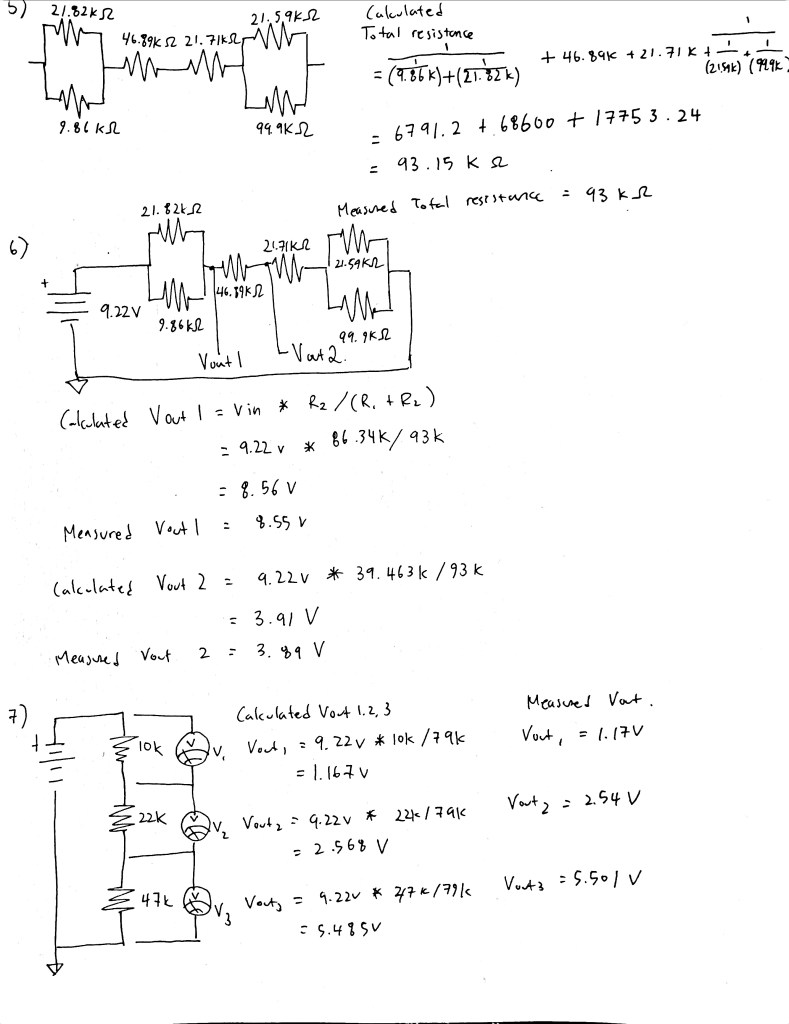 5)
21.82KΩ
46.89KΩ 21.71KΩ
21.59KΩ
9.86 KΩ
99.9KΩ
Calculated
Total resistance
= 1/((1/9.86k)+(1/21.82k)) + 46.89K + 21.71 K + 1/(1/(21.59K) + 1/(99.9K))
= 6791.2 + 68600 + 17753.24
= 93.15 K Ω
Measured Total resistance = 93 KΩ
6)
21.82KΩ
21.71KΩ
21.59KΩ
46.89KΩ
+
9.22V
9.86KΩ
99.9KΩ
Vout 1
Vout 2.
Calculated Vout 1 = Vin * R2/(R1 + R2)
= 9.22 v * 86.34K/93k
= 8.56 V
Measured Vout 1 = 8.55 V
Calculated Vout 2 = 9.22v * 39.463k/93k
= 3.91 V
Measured Vout 2 = 3.89 V
7)
Calculated Vout 1.2,3
Measured Vout.
+
10k
V
V1
Vout1 = 9.22v *10k/79k
= 1.167v
Vout1 = 1.17V
22K
V
V2
Vout2 = 9.22v * 22k/79k
= 2.568 V
Vout2 = 2.54 V
47k
V
V3
Vout3 = 9.22v * 47k/79k
= 5.485V
Vout3 = 5.501 V